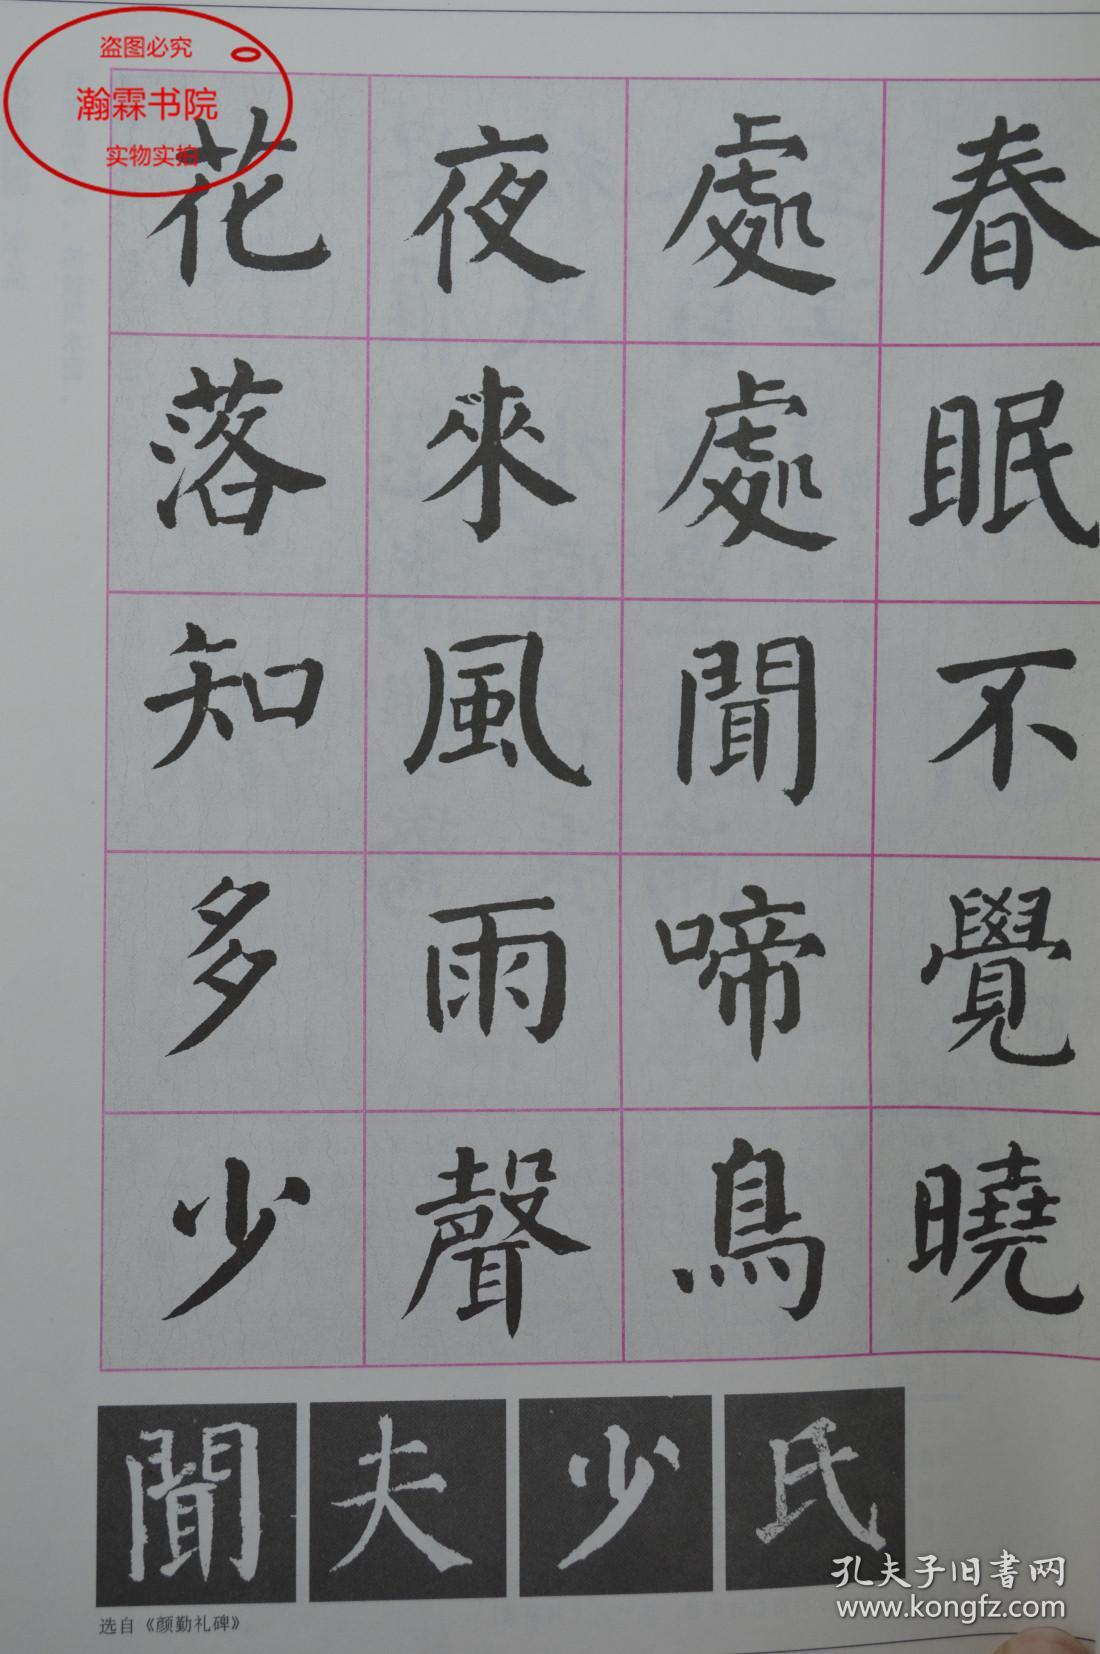 盗图必究
瀚霖书院
实物实拍
春眠不覺曉
處處聞啼鳥
夜來風雨聲
花落知多少
聞夫少氏
选自《颜勤礼碑》
孔夫子旧书网
www.kongfz.com